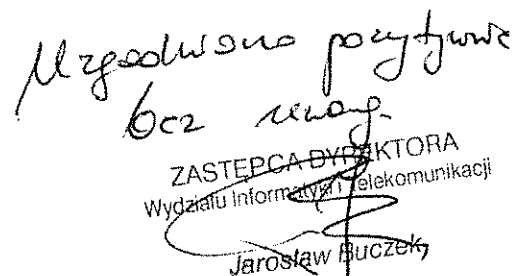 Uzgodniono pozytywnie
bez uwag.
ZASTĘPCA DYREKTORA
Wydziału Informatyki i Telekomunikacji
Jarosław Buczek